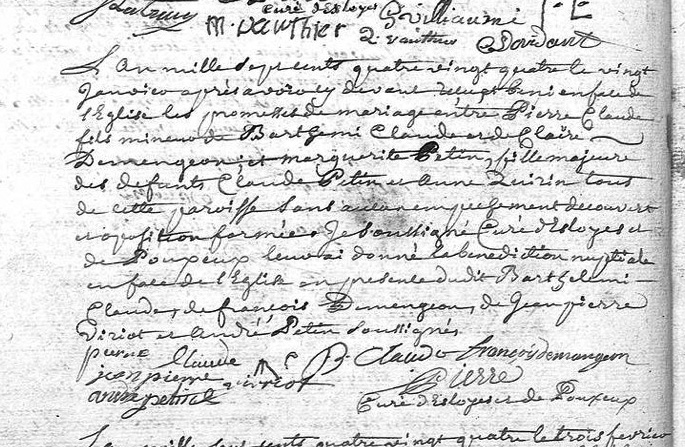 curé d'Esloyes G villiaumé
M. Vauthier
L'An mille Sept cents quatre vingt quatre le vingt
Janvier après avoir cy devant reçu et beni en face de
l'Eglise les promesses de mariage entre Pierre Claude
fils mineur de Barthemi Claude et de Claire
Demengeon; et marguerite Petin, fille majeure
des defunts Claude Petin et Anne Quirin tous
de cette paroisse Sans aucun empeschement decouvert
et oposition formée. Je Soussigné Curé d'Esloyes et
de Pouxeux leur ai donné la benediction nuptiale
en face de l'Eglise en presence dudit Barthelemi
Claude, de françois Demengeon, de Jean pierre
Viriot et André Petin Soussignés,
pierre Claude B. Claude françois demangeon
jean pierre viriot Pierre
andre petin Curé d'Esloyes et de Pouxeux
L'an mille Sept cents quatre vingt quatre le trois fevrier